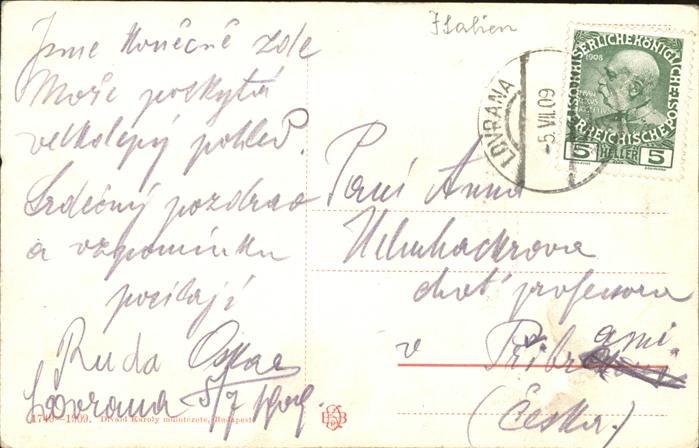 Italien
Jsme konečně zde
Moře poskytá
velkolepý pohled.
Srdečný pozdrav
a vzpomínku
posílají
Ruda Oskar
Lovrana 5/7 1909
1740—1909. Divald Károly műintézete, Budapest
LOVRANA
-5.VII.09
KAISERLICHE KÖNIGLICHE
ÖSTERREICHISCHE
1908
5 HELLER 5
Paní Anna
choť professora
v Příbrami
(Česka.)